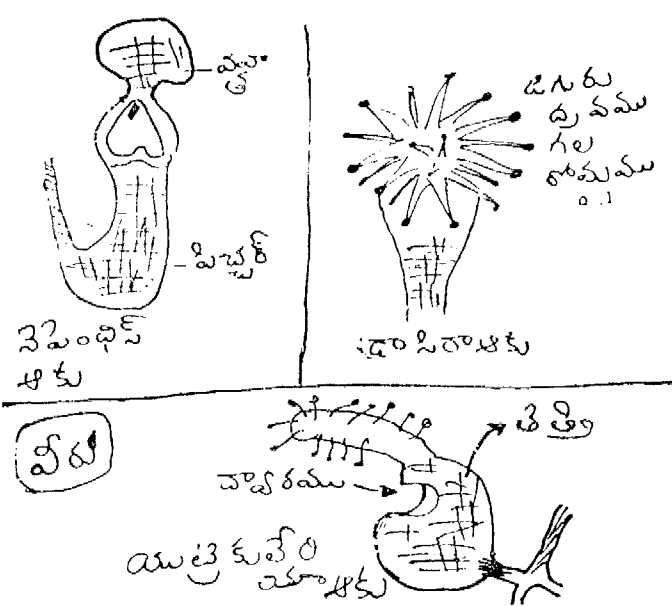 మూత
పిచ్చర్
నెపెంథిస్
ఆకు
జిగురు
ద్రవము
గల
రోమము
డ్రాసిరా ఆకు
వీరు
తిత్తి
ద్వారము
యుట్రికులేరి
యా ఆకు